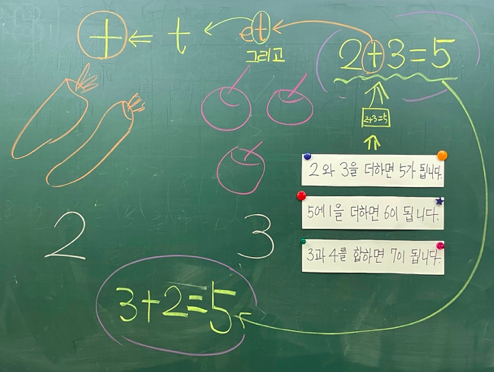 + ← t ← et
그리고
2+3=5
2+3=5
2와 3을 더하면 5가 됩니다.
5에 1을 더하면 6이 됩니다.
3과 4를 합하면 7이 됩니다.
2 3
3+2=5